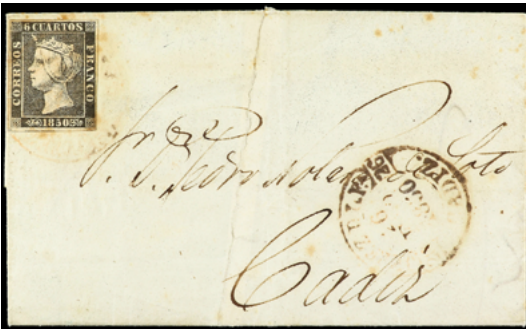 6 CUARTOS
CORREOS
FRANCO
1850
Sr. D. Pedro Nolasco de Soto
Cadiz